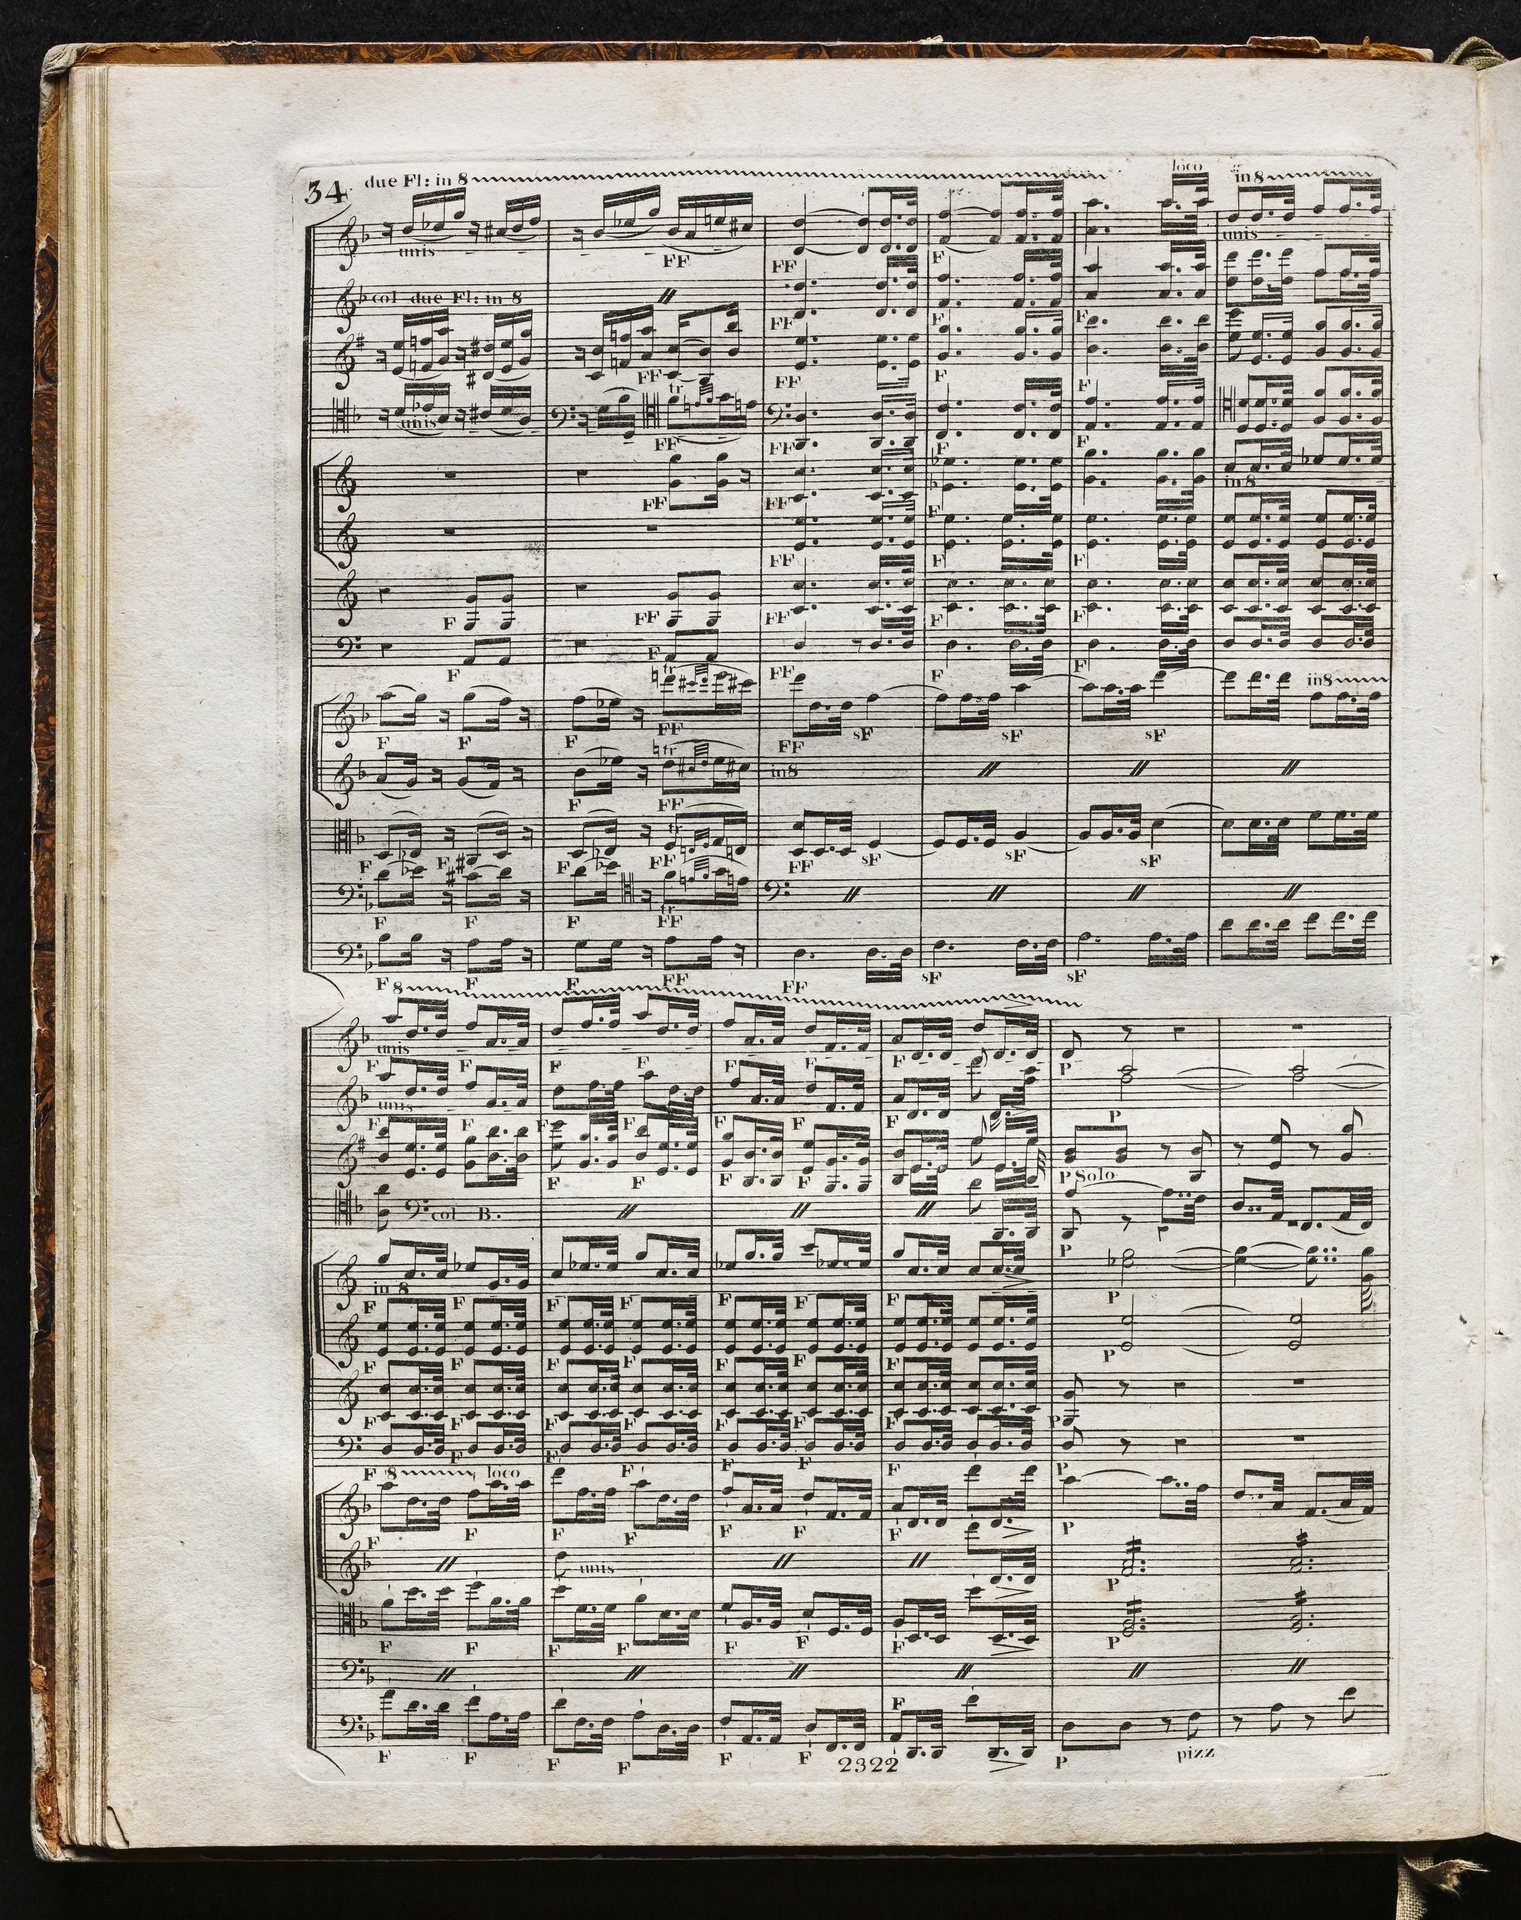 34 due Fl: in 8 loco in 8
unis FF FF F unis
col due Fl: in 8 FF F F
FF tr FF F F
unis FF FF F F
FF FF F in 8
FF F F
F FF FF F F
F F tr FF F F in8
F F F FF FF sF sF sF
tr F FF in8
F F F tr FF FF sF sF sF
F F F tr FF
F F F FF FF sF sF
8
unis F F F F F F F P
unis F F F F P
F F F F P Solo
col B. P
in 8 F F P
F F F F F F F P
F F F F F F F P
F F F F F F F P
8 loco
F F F F F F F P
unis P
F F F F F F F P
F F F F F F F P pizz
2322